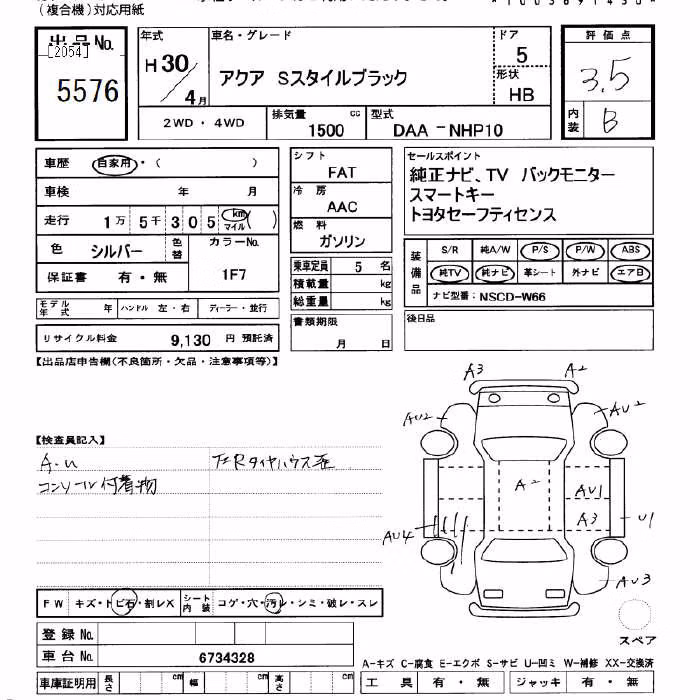 (複合機)対応用紙
出品No.
[2054]
5576
年式
H 30/4月
車名・グレード
アクア Sスタイルブラック
ドア
5
形状
HB
評価点
3.5
内装
B
2WD・4WD
排気量 cc
1500
型式
DAA－NHP10
車歴 自家用・( )
車検 年 月
走行 1万 5千 3 0 5 km マイル ( )
色 シルバー 色替
カラーNo.
1F7
保証書 有・無
モデル年式 年 ハンドル 左・右 ディーラー・並行
リサイクル料金 9,130 円 預託済
シフト
FAT
冷房
AAC
燃料
ガソリン
乗車定員 5 名
積載量 kg
総重量 kg
書類期限
月 日
セールスポイント
純正ナビ、TV バックモニター
スマートキー
トヨタセーフティセンス
装備品
S/R 純A/W P/S P/W ABS
純TV 純ナビ 革シート 外ナビ エアB
ナビ型番：NSCD-W66
後日品
【出品店申告欄(不良箇所・欠品・注意事項等)】
【検査員記入】
A・U
コンソール付着物
A3
A2
AU2
AU2
A2
AU1
A3
U1
AU4
AU3
スペア
FW キズ・トビ石・割レX シート内装 コゲ・穴・汚レ・シミ・破レ・スレ
登録No.
車台No. 6734328
車庫証明用 長さ cm 幅 cm 高さ cm
A-キズ C-腐食 E-エクボ S-サビ U-凹ミ W-補修 XX-交換済
工具 有・無 ジャッキ 有・無